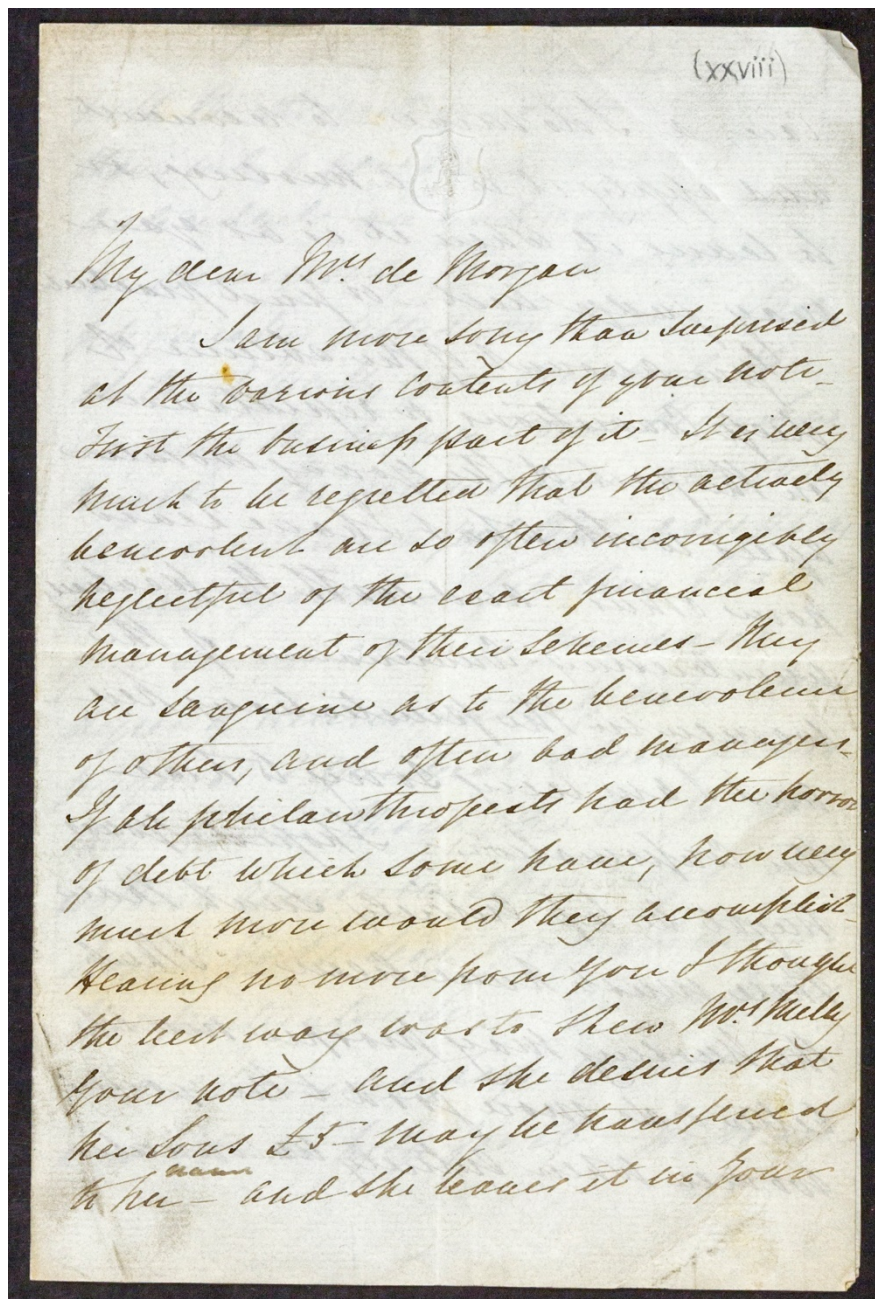 (xxviii)
My dear Mrs. de Morgan
I am more sorry than surprised
at the various contents of your note-
First the business part of it - It is very
much to be regretted that the actively
benevolent are so often incorrigibly
neglectful of the exact financial
management of their schemes - They
are sanguine as to the benevolence
of others, and often bad managers-
If all philanthropists had the horror
of debt which some have, how very
much more would they accomplish-
Hearing no more from you I thought
the best way was to shew Mrs.
your note - and she desires that
her Sons £5 - may be transferred
name
to her - and she leaves it in your